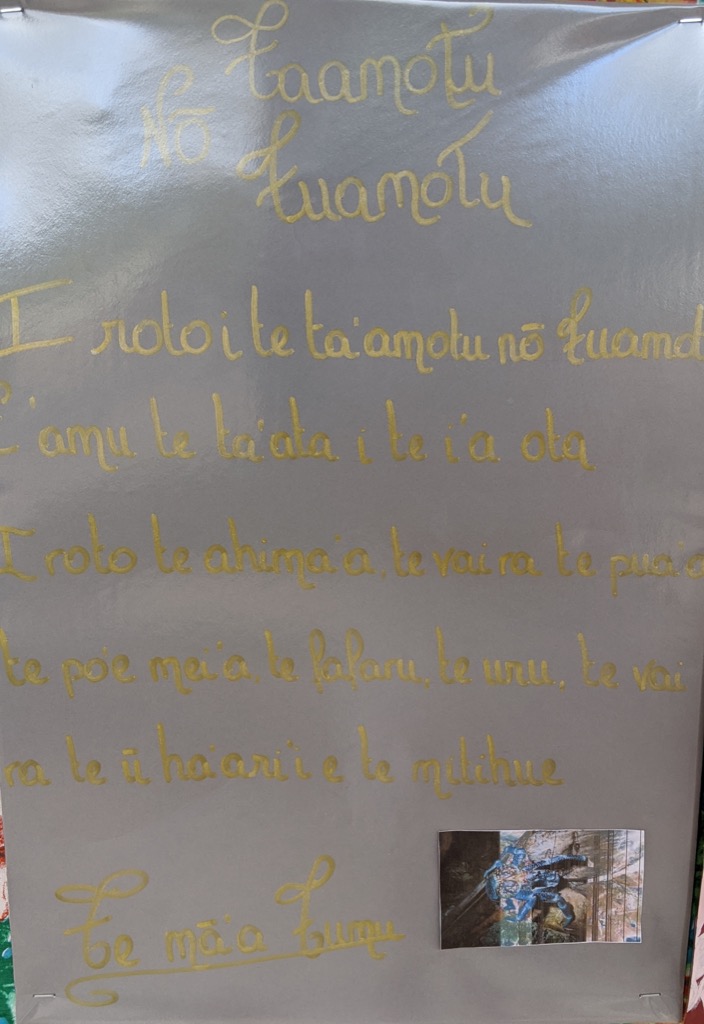 Taamotu
Nō
Tuamotu
I roto i te ta'amotu nō Tuamot
E 'amu te ta'ata i te i'a ota
I roto te ahima'a, te vai ra te pua'a
te pō'e mei'a, te fafaru, te uru, te vai
ra te ū ha'ari'i e te mitihue
Te mā'a Tumu